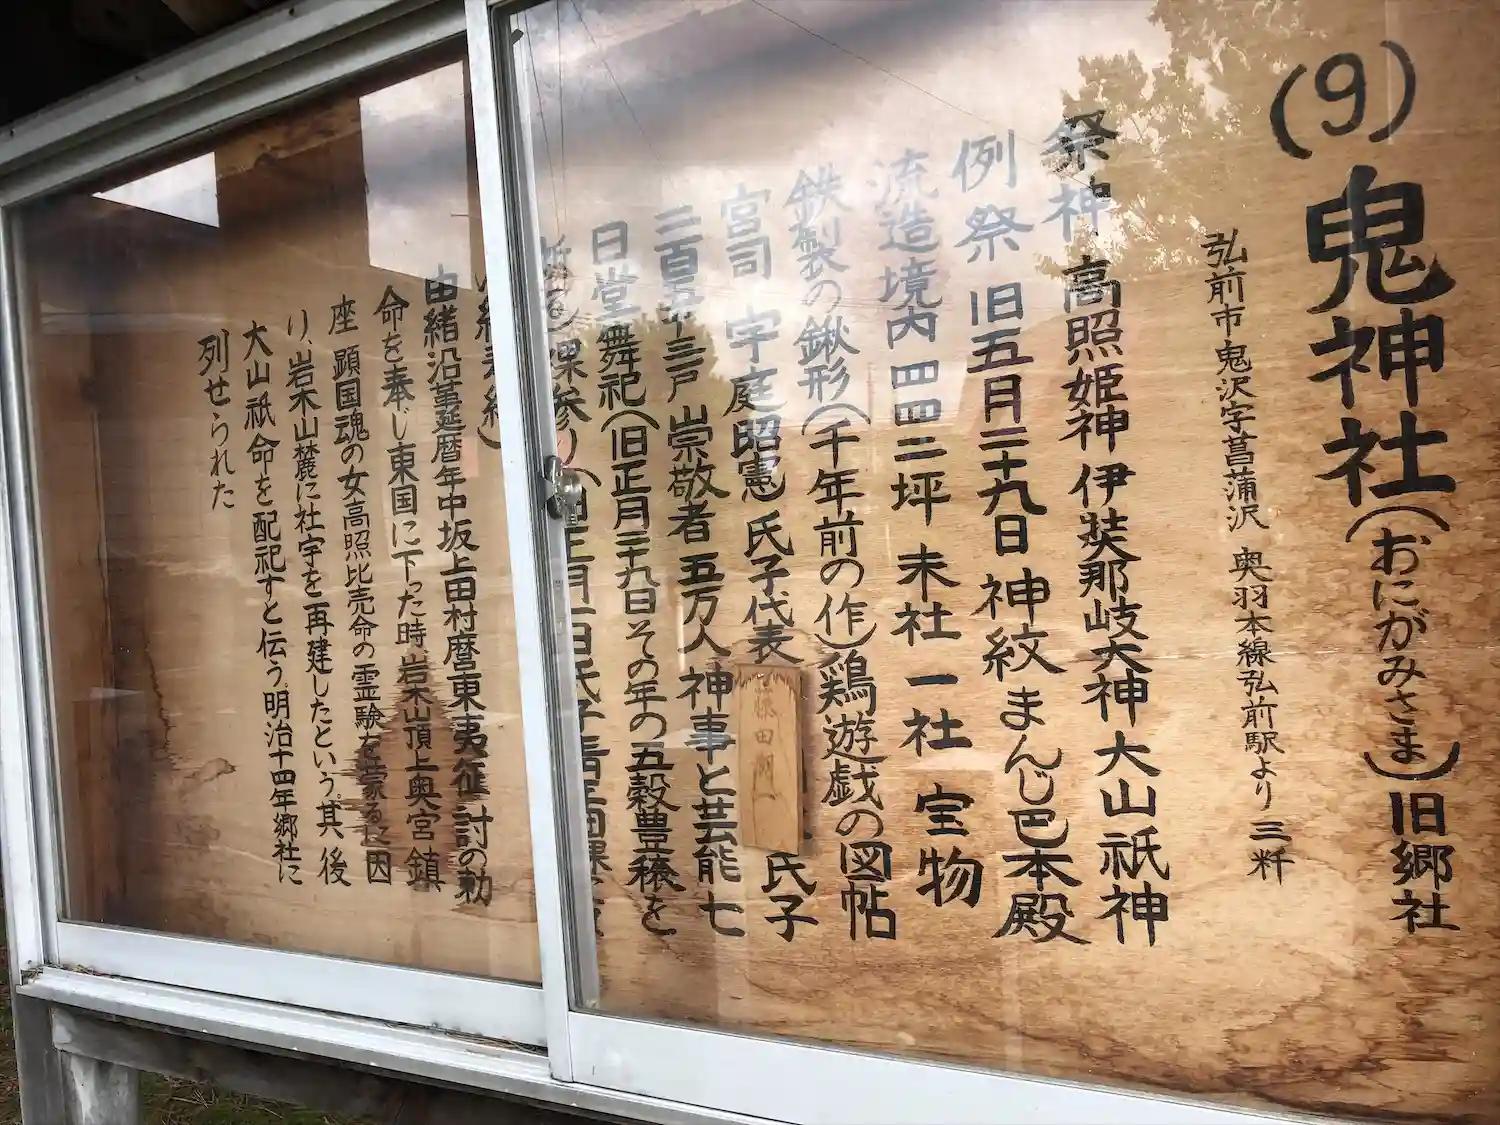 (9)鬼神社(おにがみさま)旧郷社
弘前市鬼沢字菖蒲沢 奥羽本線弘前駅より三粁
祭神 高照姫神 伊弉那岐大神 大山祇神
例祭 旧五月二十九日 神紋 まんじ巴 本殿
流造 境内 四四二坪 末社 一社 宝物
鉄製の鍬形(千年前の作)鶏遊戯の図帖
宮司 宇庭昭憲 氏子代表 藤田 氏子
二百五十三戸 崇敬者 五万人 神事と芸能 七
日堂舞祀(旧正月二十九日その年の五穀豊穣を
裸参り(旧正月一日氏子
由緒沿革 延暦年中坂上田村麿東夷征討の勅
命を奉じ東国に下った時、岩木山頂上奥宮鎮
座 顕国魂の女高照比売命の霊験を蒙るに因
り、岩木山麓に社宇を再建したという。其後
大山祇命を配祀すと伝う。明治十四年郷社に
列せられた